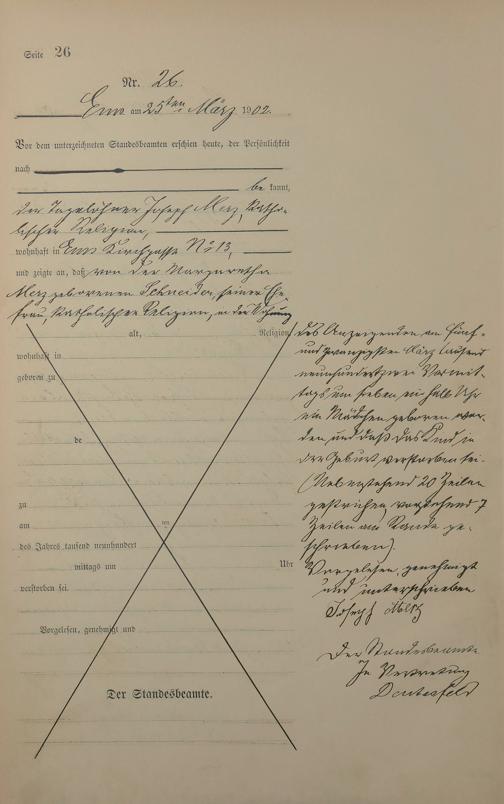 Seite 26
Nr. 26.
Ems am 25ten März 1902.
Vor dem unterzeichneten Standesbeamten erschien heute, der Persönlichkeit
nach
be kannt,
der Tagelöhner Joseph Merz, katho-
lischer Religion,
wohnhaft in Ems Kirchgasse No 13,
und zeigte an, daß von der Margaretha
Merz geborenen Schneider, seiner Ehe-
frau, katholischer Religion, in der Wohnung
alt, Religion,
wohnhaft in
geboren zu
de
zu
am ten
des Jahres tausend neunhundert
mittags um Uhr
verstorben sei.
Vorgelesen, genehmigt und
Der Standesbeamte.
des Anzeigenden am fünf-
und zwanzigsten März tausend
neunhundertzwei Vormit-
tags um sieben ein halb Uhr
ein Mädchen geboren wor-
den und daß das Kind in
der Geburt verstorben sei.
(Nebenstehend 20 Zeilen
gestrichen, vorstehend 7
Zeilen am Rande ge-
schrieben).
Vorgelesen, genehmigt
und unterschrieben
Joseph Merz
Der Standesbeamte
In Vertretung